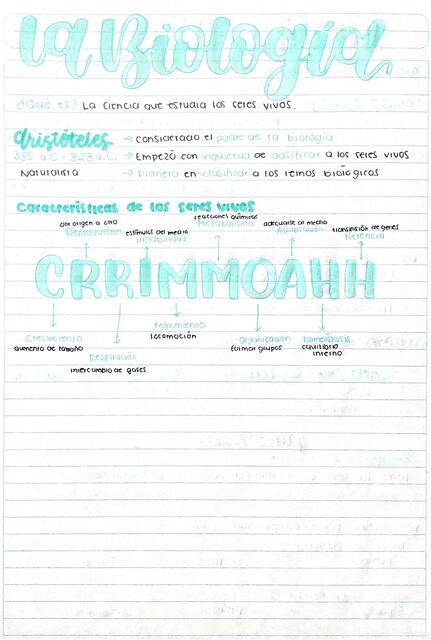 La Biología
¿Qué es? La ciencia que estudia los seres vivos.
Aristóteles → Considerado el padre de la biología
385 a.C - 323 a.C. → Empezó con inquietud de clasificar a los seres vivos
Naturalista → Pionero en clasificar a los reinos biológicos
Características de los seres vivos
dar origen a otro
Reproducción
estímulos del medio
Irritabilidad
reacciones químicas
Metabolismo
adecuarse al medio
Adaptación
transmisión de genes
Herencia
CRRIMMOAHH
Crecimiento
aumento de tamaño
Respiración
intercambio de gases
Movimiento
locomoción
Organización
formar grupos
Homeostasis
equilibrio
interno